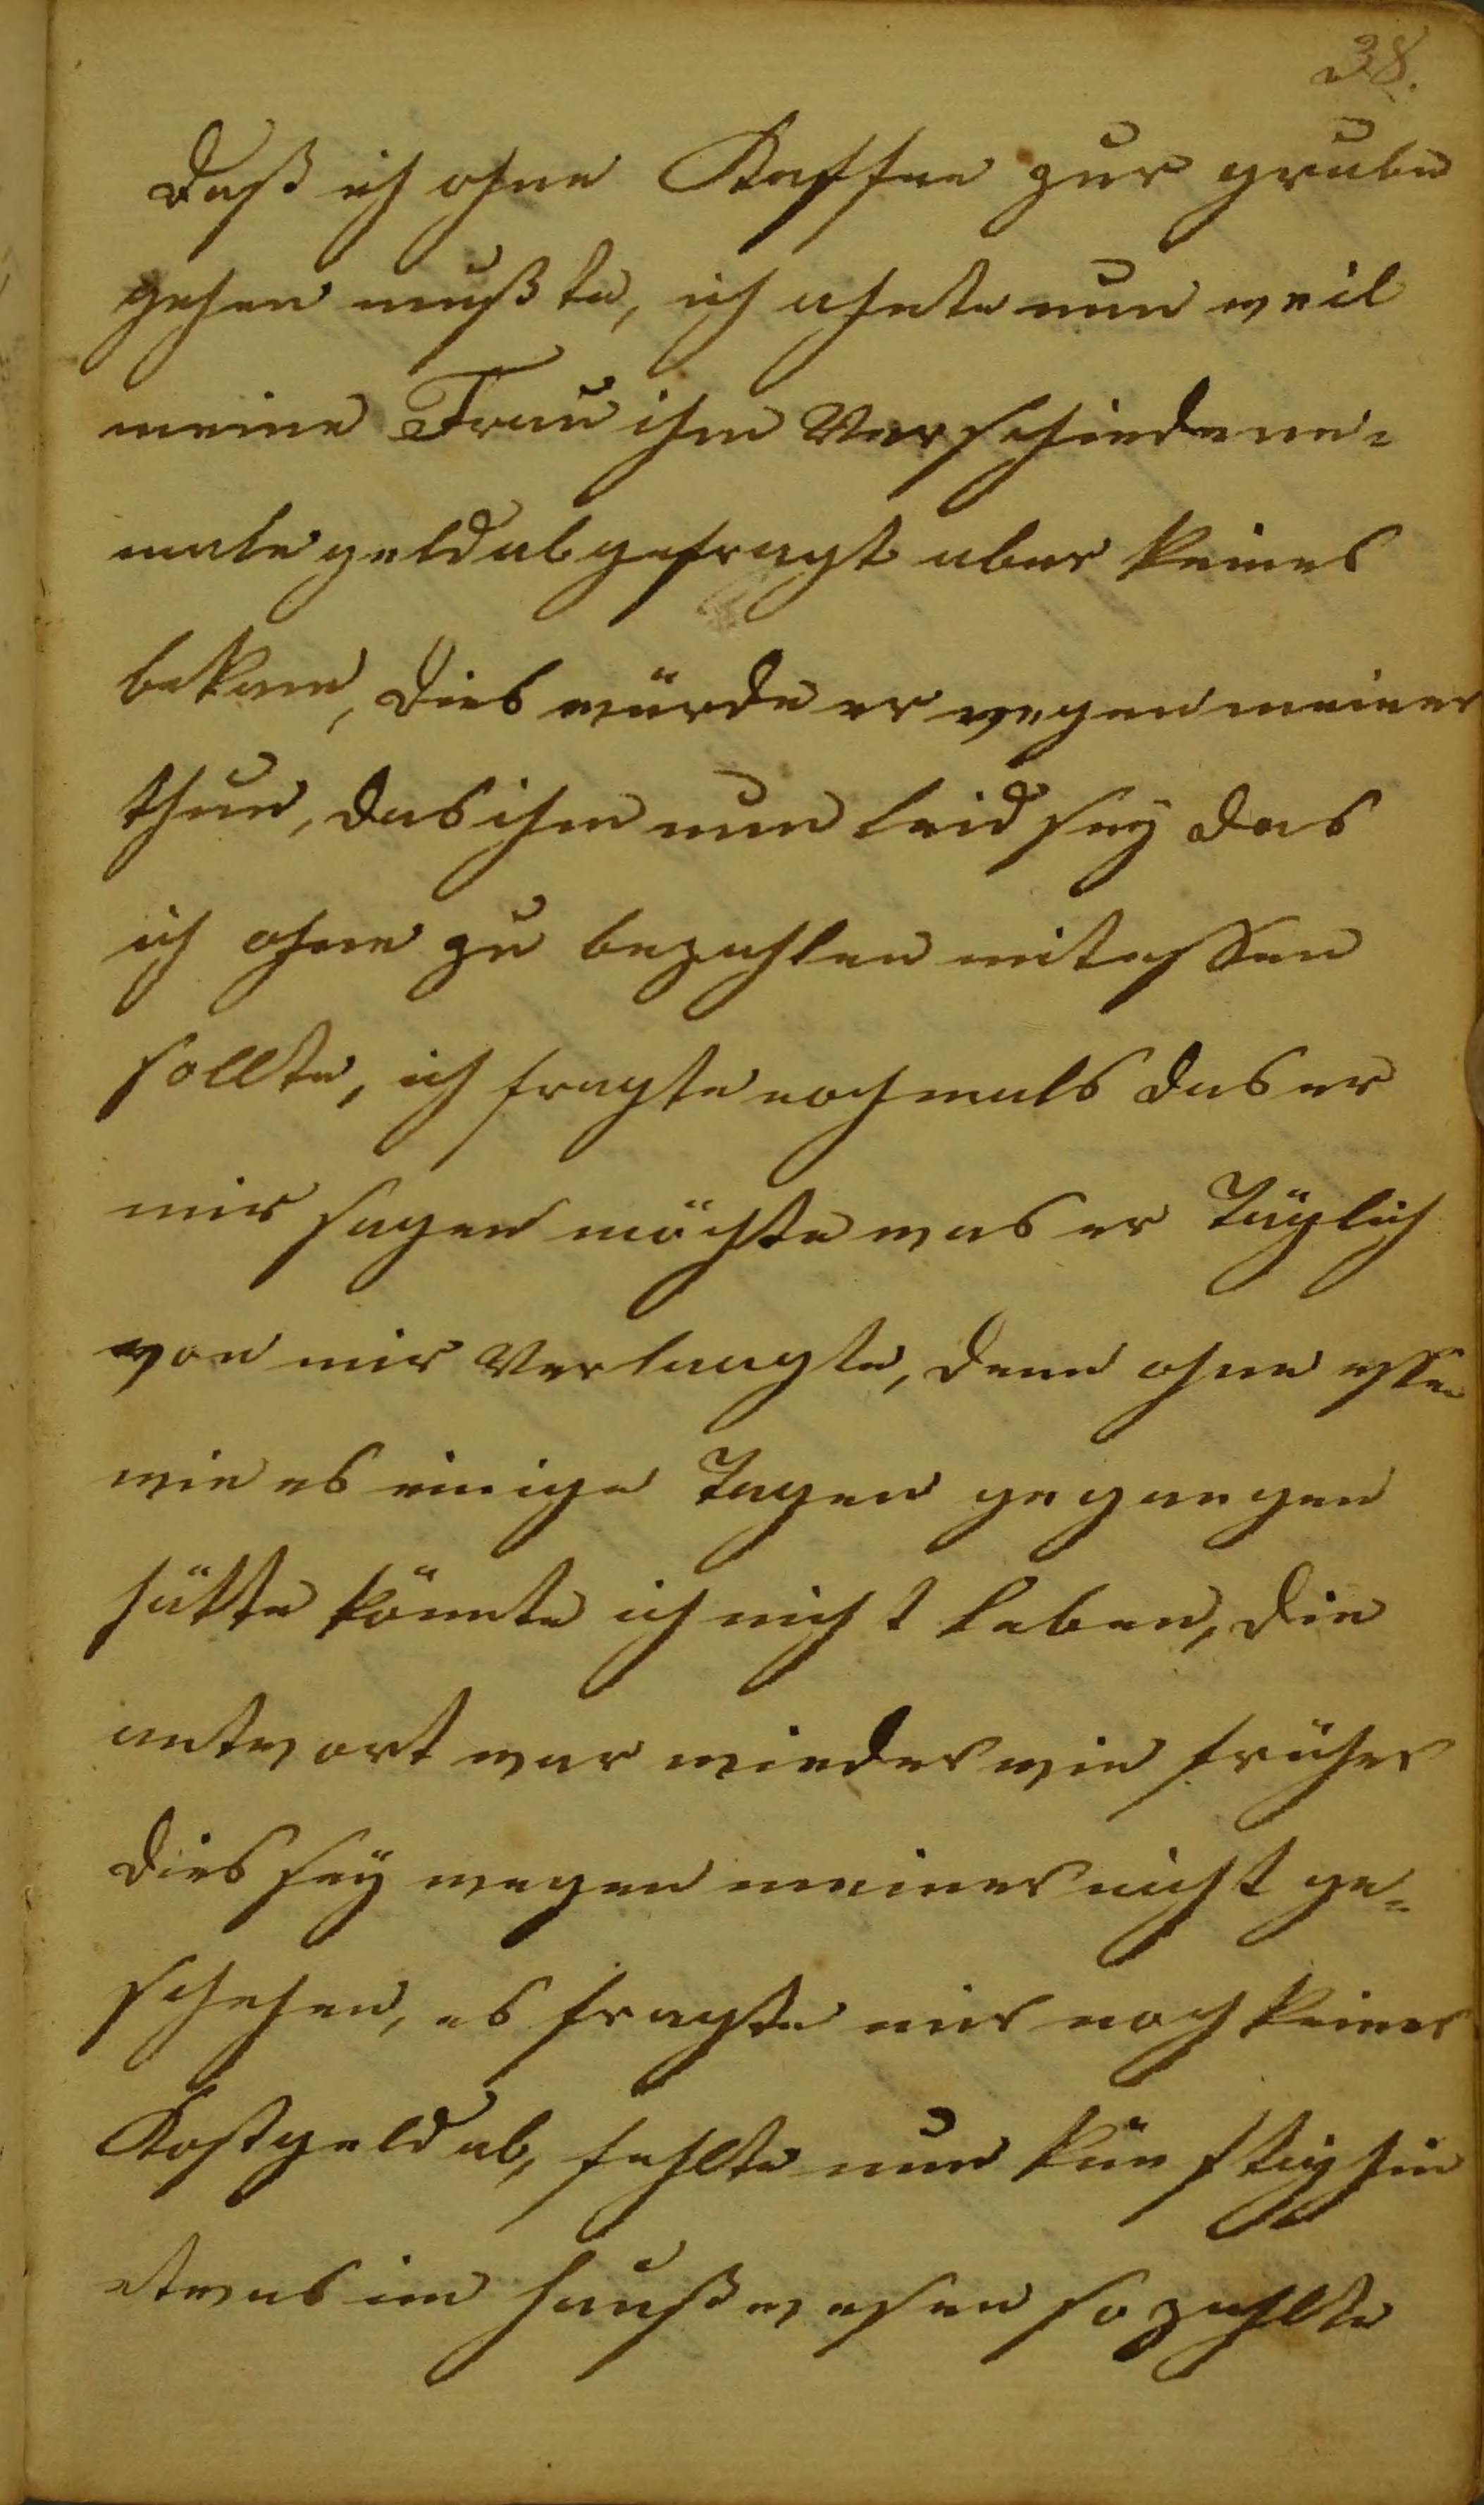 38.
Daß ich ohne Kaffee zur grube
gehen mußte, ich ahnte nun weil
meine Frau ihm Verschiedene-
male geld abgefragt aber keines
bekam, dies würde er wegen meiner
thun, das ihm nun leid sey das
ich ohne zu bezahlen mitessen
sollte, ich fragte nochmals das er
mir sagen möchte was er Täglich
von mir Verlangte, denn ohne essen
wie es einige Tagen gegangen
hätte könnte ich nicht leben, die
antwort war wieder wie früher
dies sey wegen meiner nicht ge-
schehen, es fragte mir noch keiner
Kostgeld ab, fehlte nun künftighin
etwas im haußwesen so zahlte